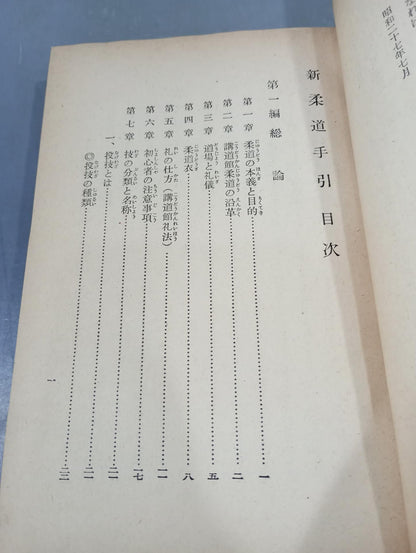 昭和二十七年七月
新柔道手引目次
第一編 総論
第一章 柔道の本義と目的……一
第二章 講道館柔道の沿革……二
第三章 道場と礼儀……五
第四章 柔道衣……八
第五章 礼の仕方（講道館礼法）……一一
第六章 初心者の注意事項……一七
第七章 技の分類と名称……二一
一、投技とは……二一
◎投技の種類……二二
一